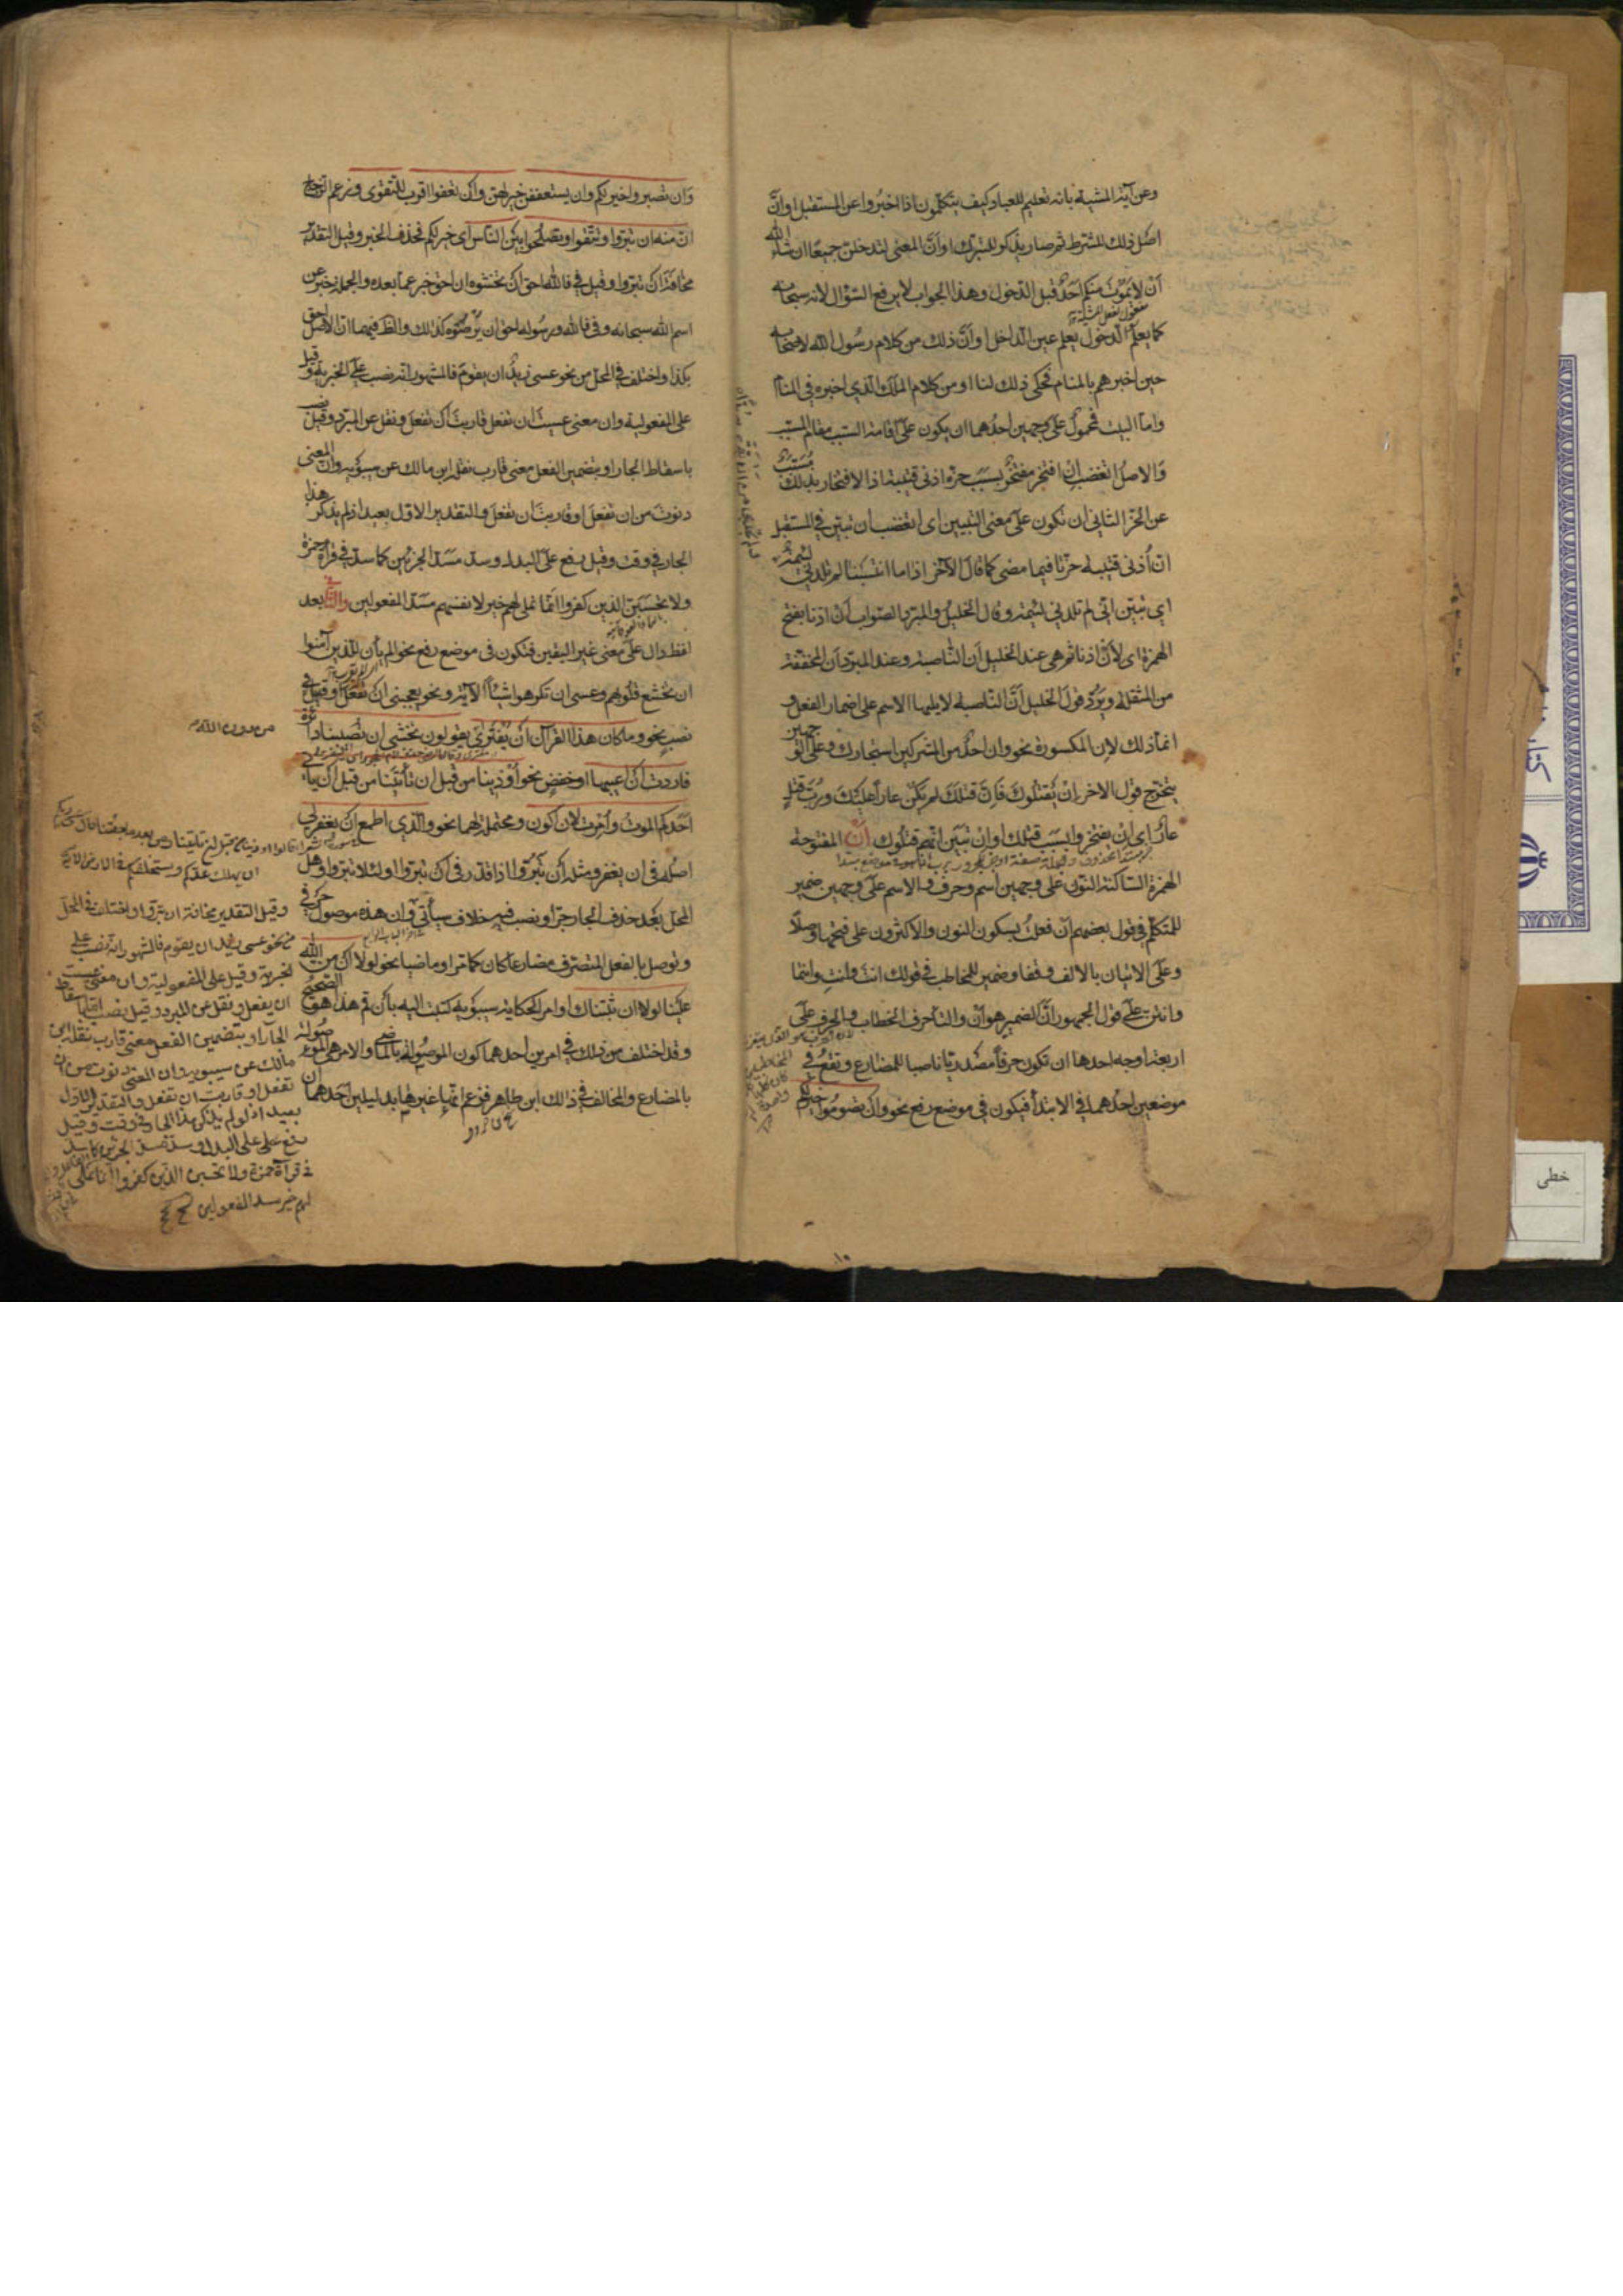 وعن آية المشية بانه تعليم للعباد كيف يتكلمون اذا اخبروا عن المستقبل او ان
اصل ذلك الشرط ثم صار يذكر للتبرك او ان المعنى لتدخلن جميعا ان شاء الله
اَنْ لا يموت منكم احد قبل الدخول وهذا الجواب لا يرفع السؤال لانه سبحانه
مفعول لفعل المشية
كما يعلم الدخول يعلم عين الداخل او ان ذلك من كلام رسول الله لاصحابه
حين اخبرهم بالمنام فحكى ذلك لنا او من كلام الملك الذي اخبره في المنام
واما البيت فمحمول على وجهين احدهما ان يكون على اقامة السبب مقام المسبب
والاصل اتغضب ان افتخر مفتخر بسبب حز اذني قتيبة اذا الافتخار بذلك مسبب
عن الحز الثاني ان تكون على معنى التبيين اى اتغضب ان تبين في المستقبل
ان أُذني قتيبة حزتا فيما مضى كما قال الآخر اذا ما انتسبنا لم تلدني لئيمة
اي تبين انى لم تلدني لئيمة وقال الخليل والمبرد الصواب اَن اذنا بفتح
الهمزة اى لاَنْ اذنا ثم هي عند الخليل اَن الناصبة وعند المبرد اَن المخففة
من الثقلة ويرد قول الخليل انّ الناصبة لا يليها الاسم على اضمار الفعل و
انما ذلك لاِن المكسورة نحو وان احد من المشركين استجارك وعلى الوجهين
يتخرج قول الاخر اِنْ يقتلوك فَاِنّ قتلك لم يكن عارا عليك وربّ قتلٍ
عارُ اى اِنْ يفتخروا بسبب قتلك او اِنْ تبين انهم قتلوك أن المفتوحة
الهمزة الساكنة النون على وجهين اسم وحرف والاسم على وجهين ضمير
للمتكلم في قول بعضهم اَنْ فعلتُ بسكون النون والاكثرون على فتحها وصلًا
وعلى الاتيان بالالف وقفا وضمير للمخاطب في قولك انتَ وانتِ وانتما
وانتن على قول الجمهور انّ الضمير هو اَنْ والتاء حرف الخطاب والحرف على
اربعة اوجه احدها ان تكون حرفًا مصدريًّا ناصبا للمضارع وتقع في
موضعين احدهما في الابتداء فيكون في موضع رفع نحو واَن تصوموا خير لكم
وَان تصبروا خير لكم وان يستعففن خير لهن واَن تعفوا اقرب للتقوى وزعم الزجاج
انّ منه ان تبروا وتتقوا وتصلحوا بين الناس اى خير لكم فحذف الخبر وقيل التقدير
مخافة اَن تبروا وقيل في فالله احق اَن تخشوه ان احق خبر عما بعده والجملة خبر عن
اسم الله سبحانه وفى فالله ورسوله احق ان يرضوه كذلك والظ فيهما ان الاصل احق
بكذا واختلف في المحل من نحو عسى زيد ان يقوم فالمشهور انه نصب على الخبرية وقيل
على المفعولية وان معنى عسيت ان تفعل قاربت اَن تفعل ونقل عن المبرد وقيل نصب
باسقاط الجار او بتضمين الفعل معنى قارب نقله ابن مالك عن سيبويه وان المعنى
دنوت من ان تفعل او قاربت ان تفعل والتقدير الاول بعيد اذ لم يذكر هذا
الجار في وقت وقيل رفع على البدل وسد مسد الجزئين كما سد في قراءة حمزة
ولا تحسبن الذين كفروا انما نملى لهم خير لانفسهم مسد المفعولين والثاني بعد
لفظ دال على معنى غير اليقين فتكون في موضع رفع نحو الم يأن للذين آمنوا
ان تخشع قلوبهم وعسى ان تكرهوا شيئا الآية ونحو يعجبني اَن تفعل وقيل في
نصب نحو وما كان هذا القرآن اَن يُفترى يقولون نخشى ان تصيبنا دائرة
من دون الله
فاردت اَن اعيبها او خفض نحو اوذينا من قبل ان تأتينا من قبل اَن يأتى
احدكم الموتُ وأمرت لاَن اكون ومحتملة لهما نحو والذي اطمع اَن يغفرلى
اصله في ان يغفر ومثله اَن تَبَرُّوا اذا قدر في اَن تبروا او لئلا تبروا وهل
المحل بَعد حذف الجار جر او نصب فيه خلاف سيأتى وان هذه موصول حرفى
وتوصل بالفعل المتصرف مضارعا كان كما مر او ماضيا نحو لولا اَن من الله
علينا لولا ان ثبتناك او امر الحكاية سيبويه كتبت اليه باَن قم هذا هو الصحيح
وقد اختلف من ذلك في امرين احدهما كون الموصولة بالماضى والامر هى الموصولة
بالمضارع والمخالف في ذلك ابن طاهر فزعم انها غيرها بدليلين احدهما ان
وقيل التقدير مخافة ان تبروا واختلف في المحل
من نحو عسى زيد ان يقوم فالمشهور انه نصب على
الخبرية وقيل على المفعولية وان معنى عسيت
ان يفعل ونقل عن المبرد وقيل نصب باسقاط
الجار او بتضمين الفعل معنى قارب نقله ابن
مالك عن سيبويه وان المعنى دنوت من ان
تفعل او قاربت ان تفعل والتقدير الاول
بعيد اذ لم يذكر هذا الجار في وقت وقيل
رفع على البدل وسد مسد الجزئين كما سد
فى قرآة حمزة ولا تحسبن الذين كفروا انما نملى
لهم خير سد المفعولين صح
خطى